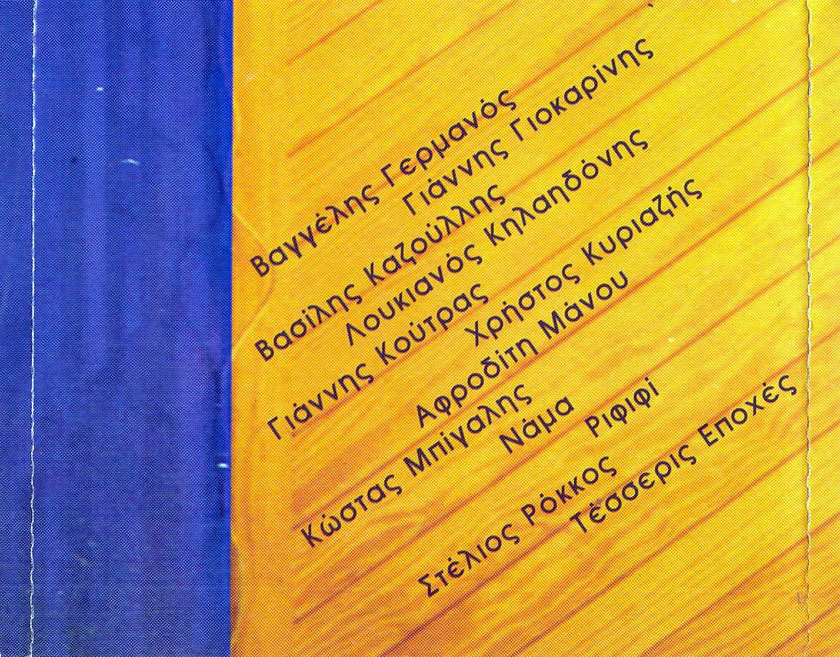 Βαγγέλης Γερμανός
Γιάννης Γιοκαρίνης
Βασίλης Καζούλλης
Λουκιανός Κηλαηδόνης
Γιάννης Κούτρας
Χρήστος Κυριαζής
Αφροδίτη Μάνου
Κώστας Μπίγαλης
Νάμα
Ριφιφί
Στέλιος Ρόκκος
Τέσσερις Εποχές